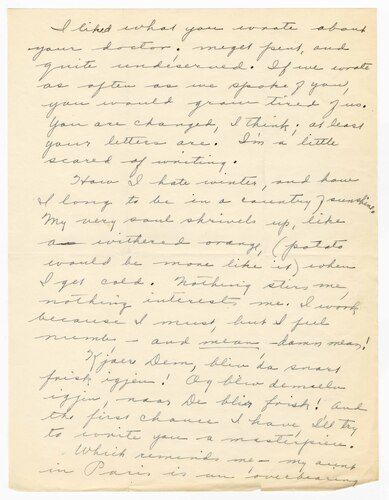 I liked what you wrote about
your doctor. meget pent, and
quite undeserved. If we wrote
as often as we spoke of you,
you would grow tired of us.
You are changed, I think; at least
your letters are. I'm a little
scared of writing.
How I hate winter, and how
I long to be in a country of sunshine.
My very soul shrivels up, like
a withered orange, (potato
would be more like it) when
I get cold. Nothing stirs me,
nothing interests me. I work
because I must, but I feel
numb - and mean - damn mean!
Kjære Dem, bliv da snart
frisk igjen! Og bliv demselv
igjen, naar De blir frisk! And
the first chance I have, I'll try
to write you a masterpiece.
Which reminds me - my aunt
in Paris is an overbearing